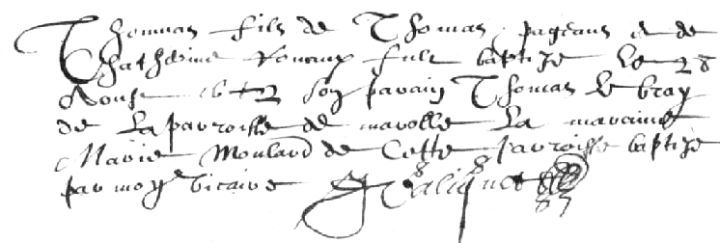 Thomas fils de Thomas pageaus & de
Chatherine Roneaux fult baptize le 28
Nouse 1642 son parain Thomas le bray
de la parroisse de marolle La maraine
Marie Moulard de Cette parroisse baptize
par moy vicaire